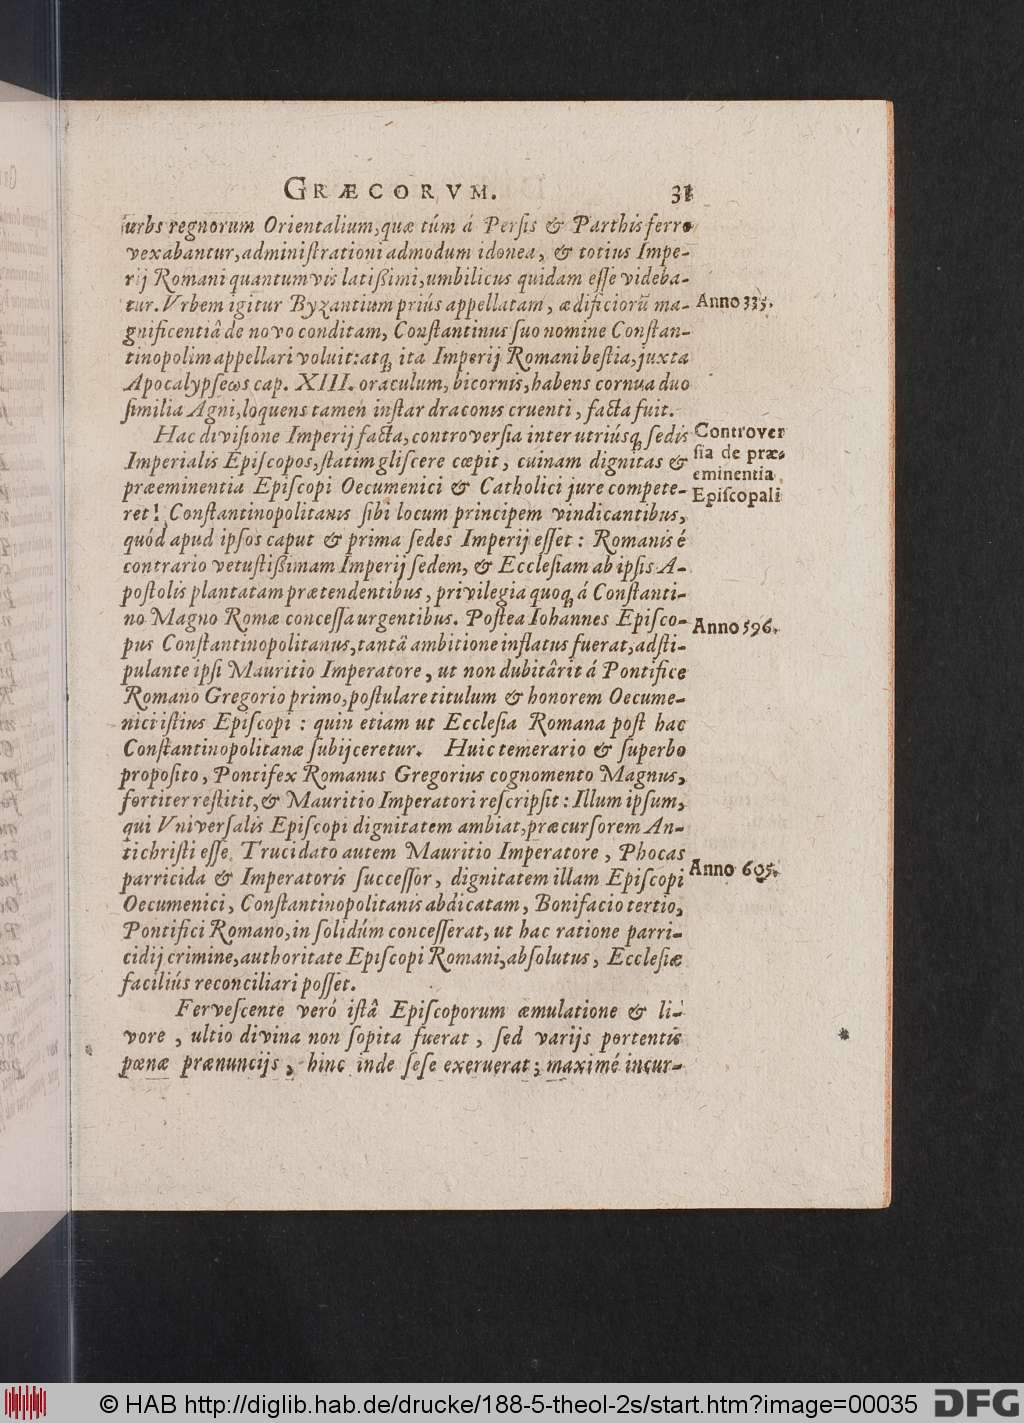 GRÆCORVM. 31
urbs regnorum Orientalium, quæ túm á Persis & Parthis ferro
vexabantur, administrationi admodum idonea, & totius Impe-
rij Romani quantumvis latißimi, umbilicus quidam esse videba-
tur. Vrbem igitur Byzantium priús appellatam, ædificiorũ ma-
Anno 335.
gnificentiâ de novo conditam, Constantinus suo nomine Constan-
tinopolim appellari voluit: atq́ ita Imperij Romani bestia, juxta
Apocalypseωs cap. XIII. oraculum, bicornis, habens cornua duo
similia Agni, loquens tamen instar draconis cruenti, facta fuit.
Hac divisione Imperij facta, controversia inter utriúsq́ sedis
Imperialis Episcopos, statim gliscere cœpit, cuinam dignitas &
præeminentia Episcopi Oecumenici & Catholici jure compete-
ret! Constantinopolitanis sibi locum principem vindicantibus,
Controver
sia de præ-
eminentia
Episcopali
quód apud ipsos caput & prima sedes Imperij esset: Romanis é
contrario vetustißimam Imperij sedem, & Ecclesiam ab ipsis A-
postolis plantatam prætendentibus, privilegia quoq́ á Constanti-
no Magno Romæ concessa urgentibus. Postea Iohannes Episco-
Anno 596.
pus Constantinopolitanus, tantâ ambitione inflatus fuerat, adsti-
pulante ipsi Mauritio Imperatore, ut non dubitârit á Pontifice
Romano Gregorio primo, postulare titulum & honorem Oecume-
nici istius Episcopi: quin etiam ut Ecclesia Romana post hac
Constantinopolitanæ subijceretur. Huic temerario & superbo
proposito, Pontifex Romanus Gregorius cognomento Magnus,
fortiter restitit, & Mauritio Imperatori rescripsit: Illum ipsum,
qui Vniversalis Episcopi dignitatem ambiat, præcursorem An-
tichristi esse. Trucidato autem Mauritio Imperatore, Phocas
parricida & Imperatoris successor, dignitatem illam Episcopi
Anno 605.
Oecumenici, Constantinopolitanis abdicatam, Bonifacio tertio,
Pontifici Romano, in solidúm concesserat, ut hac ratione parri-
cidij crimine, authoritate Episcopi Romani, absolutus, Ecclesiæ
faciliús reconciliari posset.
Fervescente veró istâ Episcoporum æmulatione & li-
vore, ultio divina non sopita fuerat, sed varijs portentis
pœnæ prænuncijs, hinc inde sese exeruerat; maximé incur-
© HAB http://diglib.hab.de/drucke/188-5-theol-2s/start.htm?image=00035
DFG